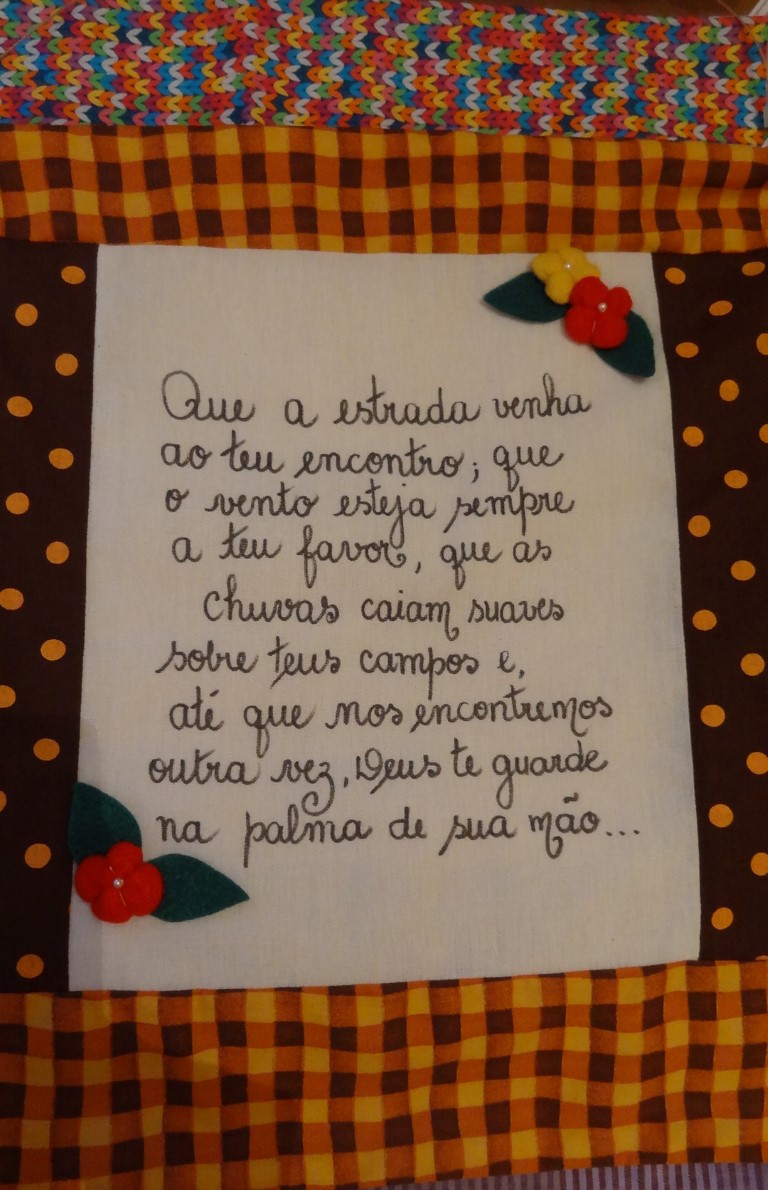 Que a estrada venha
ao teu encontro; que
o vento esteja sempre
a teu favor, que as
chuvas caiam suaves
sobre teus campos e,
até que nos encontremos
outra vez, Deus te guarde
na palma de sua mão...